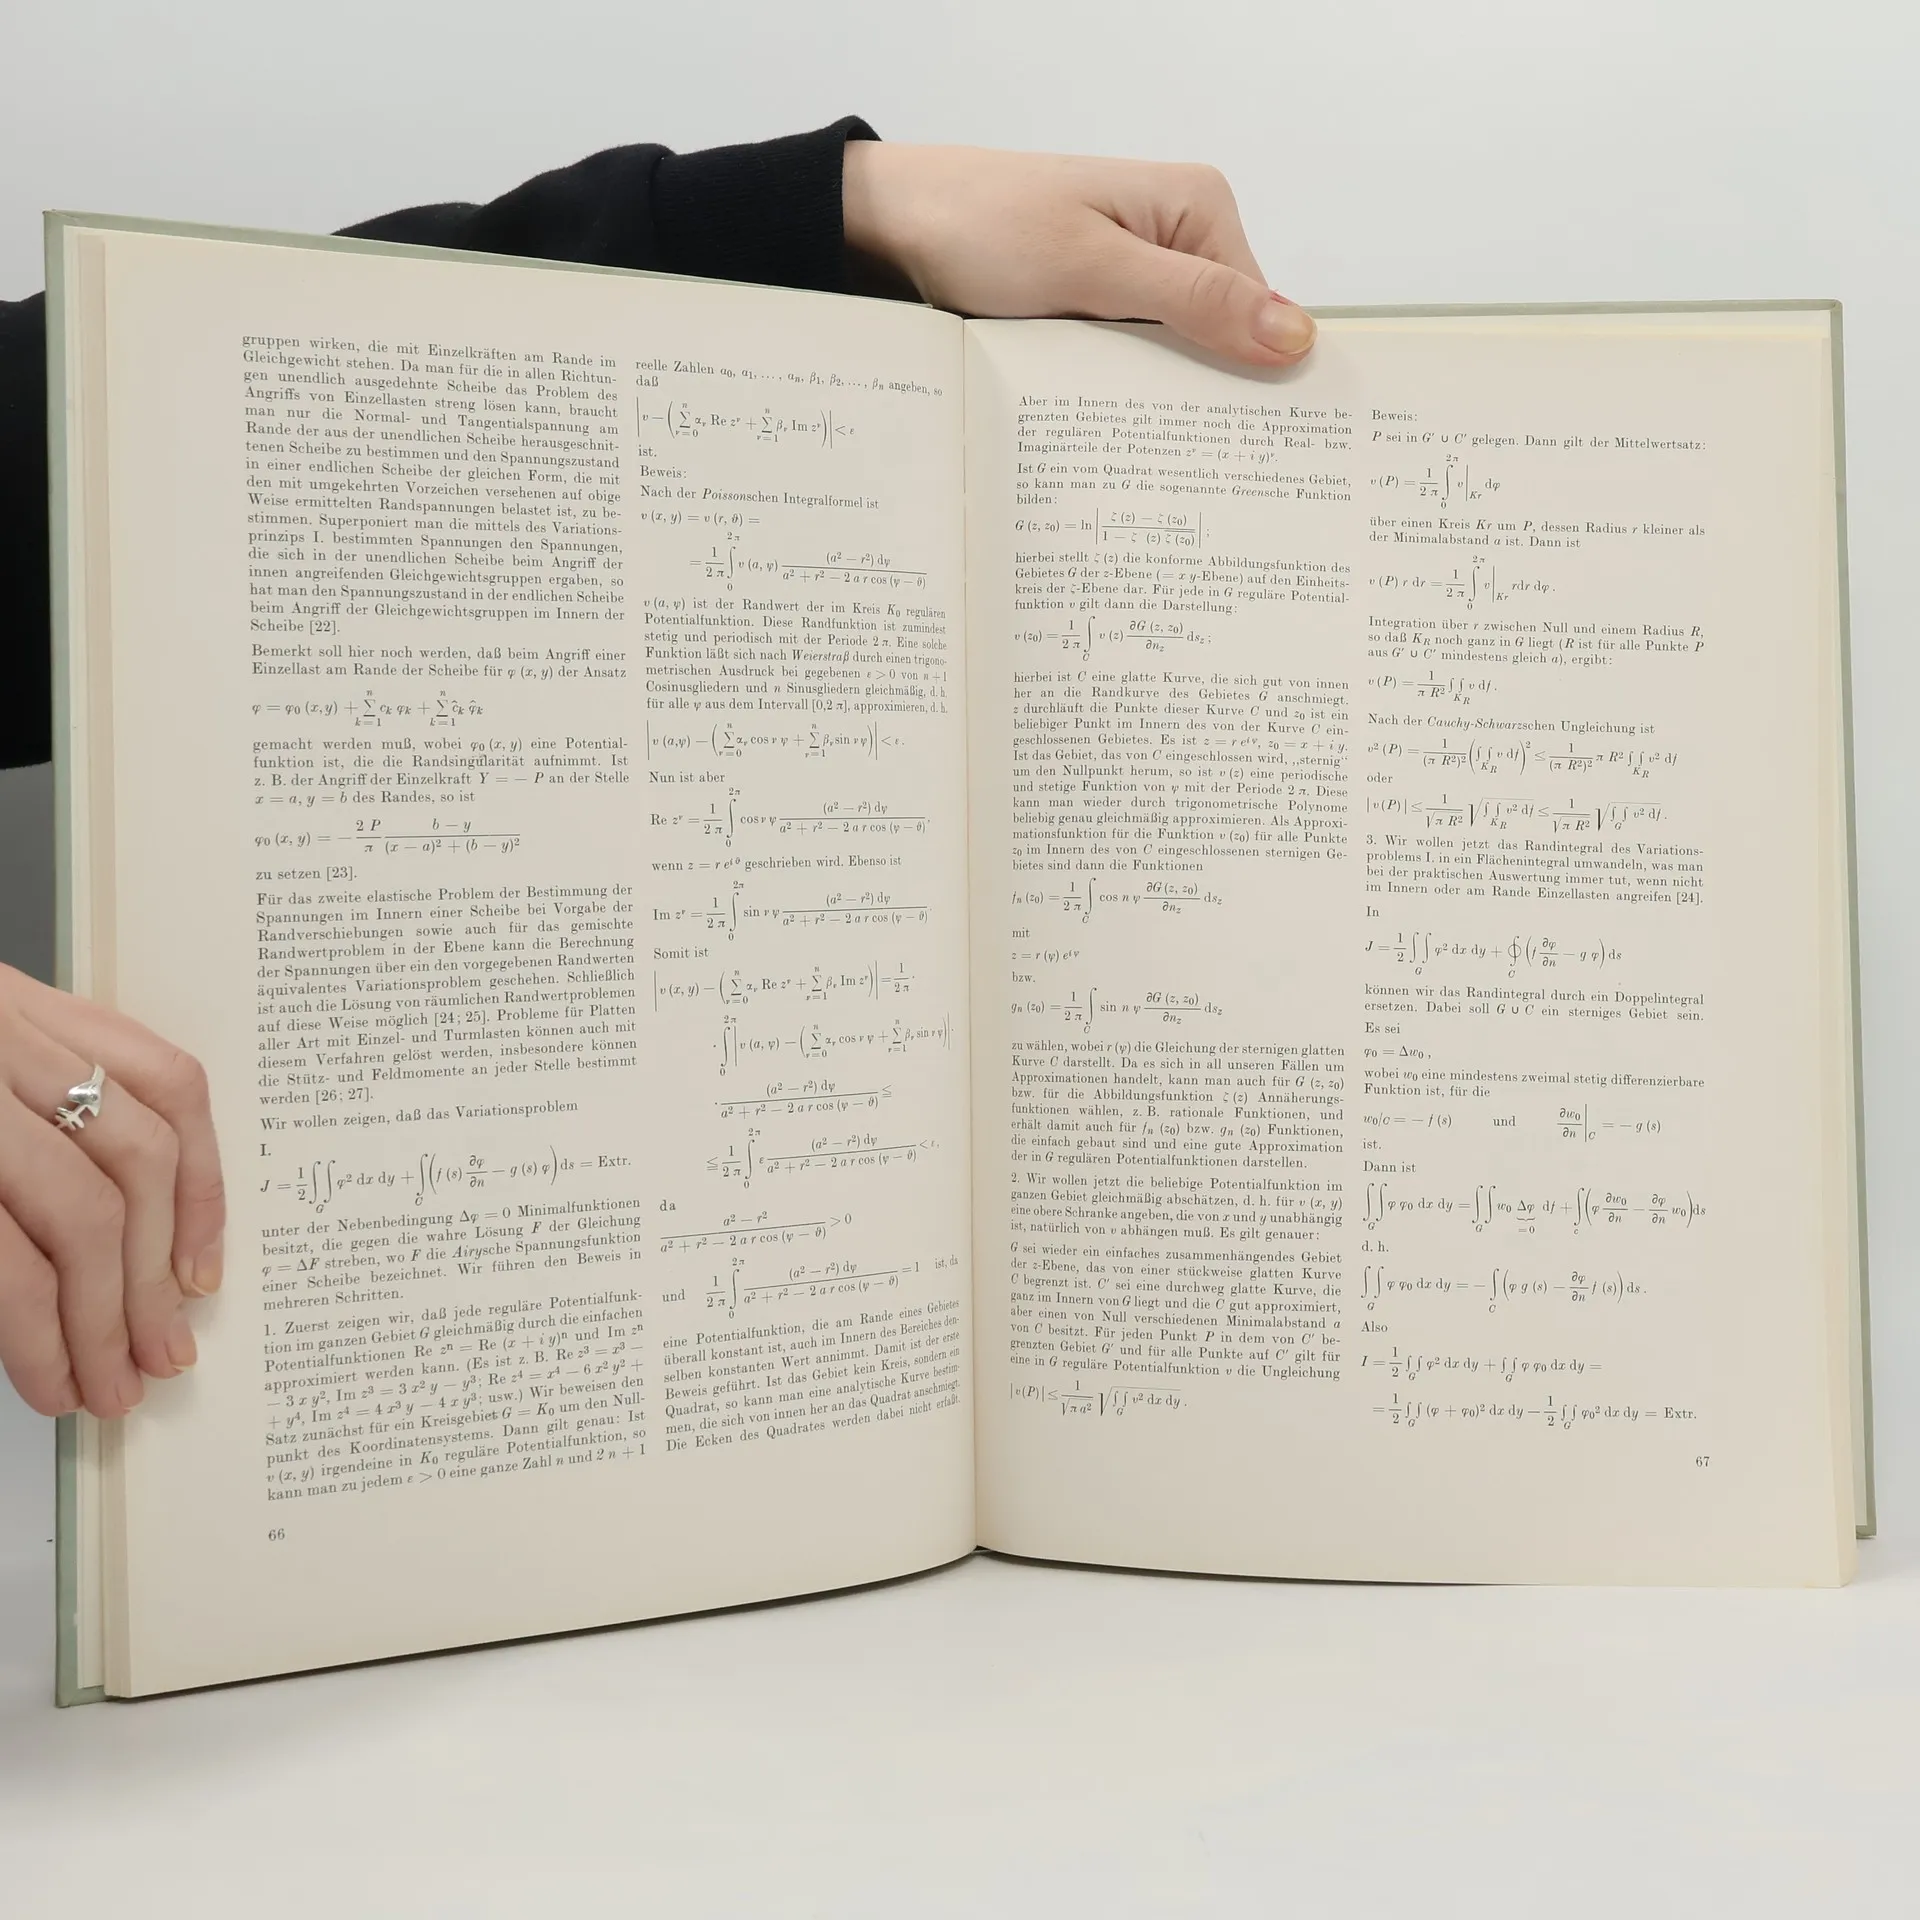 gruppen wirken, die mit Einzelkräften am Rande im
Gleichgewicht stehen. Da man für die in allen Richtun-
gen unendlich ausgedehnte Scheibe das Problem des
Angriffs von Einzellasten streng lösen kann, braucht
man nur die Normal- und Tangentialspannung am
Rande der aus der unendlichen Scheibe herausgeschnit-
tenen Scheibe zu bestimmen und den Spannungszustand
in einer endlichen Scheibe der gleichen Form, die mit
den mit umgekehrten Vorzeichen versehenen auf obige
Weise ermittelten Randspannungen belastet ist, zu be-
stimmen. Superponiert man die mittels des Variations-
prinzips I. bestimmten Spannungen den Spannungen,
die sich in der unendlichen Scheibe beim Angriff der
innen angreifenden Gleichgewichtsgruppen ergaben, so
hat man den Spannungszustand in der endlichen Scheibe
beim Angriff der Gleichgewichtsgruppen im Innern der
Scheibe [22].
Bemerkt soll hier noch werden, daß beim Angriff einer
Einzellast am Rande der Scheibe für φ (x, y) der Ansatz
φ = φ₀ (x,y) + ∑_{k=1}^{n} c_k φ_k + ∑_{k=1}^{n} ĉ_k φ̂_k
gemacht werden muß, wobei φ₀ (x, y) eine Potential-
funktion ist, die die Randsingularität aufnimmt. Ist
z. B. der Angriff der Einzelkraft Y = — P an der Stelle
x = a, y = b des Randes, so ist
φ₀ (x, y) = — 2 P/π (b — y)/((x — a)² + (b — y)²)
zu setzen [23].
Für das zweite elastische Problem der Bestimmung der
Spannungen im Innern einer Scheibe bei Vorgabe der
Randverschiebungen sowie auch für das gemischte
Randwertproblem in der Ebene kann die Berechnung
der Spannungen über ein den vorgegebenen Randwerten
äquivalentes Variationsproblem geschehen. Schließlich
ist auch die Lösung von räumlichen Randwertproblemen
auf diese Weise möglich [24; 25]. Probleme für Platten
aller Art mit Einzel- und Turmlasten können auch mit
diesem Verfahren gelöst werden, insbesondere können
die Stütz- und Feldmomente an jeder Stelle bestimmt
werden [26; 27].
Wir wollen zeigen, daß das Variationsproblem
I.
J = 1/2 ∫∫_G φ² dx dy + ∫_C (f (s) ∂φ/∂n — g (s) φ) ds = Extr.
unter der Nebenbedingung Δφ = 0 Minimalfunktionen
besitzt, die gegen die wahre Lösung F der Gleichung
φ = ΔF streben, wo F die Airysche Spannungsfunktion
einer Scheibe bezeichnet. Wir führen den Beweis in
mehreren Schritten.
1. Zuerst zeigen wir, daß jede reguläre Potentialfunk-
tion im ganzen Gebiet G gleichmäßig durch die einfachen
Potentialfunktionen Re zⁿ = Re (x + i y)ⁿ und Im zⁿ
approximiert werden kann. (Es ist z. B. Re z³ = x³ —
— 3 x y², Im z³ = 3 x² y — y³; Re z⁴ = x⁴ — 6 x² y² +
+ y⁴, Im z⁴ = 4 x³ y — 4 x y³; usw.) Wir beweisen den
Satz zunächst für ein Kreisgebiet G = K₀ um den Null-
punkt des Koordinatensystems. Dann gilt genau: Ist
v (x, y) irgendeine in K₀ reguläre Potentialfunktion, so
kann man zu jedem ε > 0 eine ganze Zahl n und 2 n + 1
66
reelle Zahlen α₀, α₁, . . . , αₙ, β₁, β₂, . . . , βₙ angeben, so
daß
|v — (∑_{ν=0}^{n} α_ν Re z^ν + ∑_{ν=1}^{n} β_ν Im z^ν)| < ε
ist.
Beweis:
Nach der Poissonschen Integralformel ist
v (x, y) = v (r, ϑ) =
= 1/(2 π) ∫_0^{2π} v (a, ψ) (a² — r²) dψ/(a² + r² — 2 a r cos (ψ — ϑ))
v (a, ψ) ist der Randwert der im Kreis K₀ regulären
Potentialfunktion. Diese Randfunktion ist zumindest
stetig und periodisch mit der Periode 2 π. Eine solche
Funktion läßt sich nach Weierstraß durch einen trigono-
metrischen Ausdruck bei gegebenen ε > 0 von n + 1
Cosinusgliedern und n Sinusgliedern gleichmäßig, d. h.
für alle ψ aus dem Intervall [0,2 π], approximieren, d. h.
|v (a,ψ) — (∑_{ν=0}^{n} α_ν cos ν ψ + ∑_{ν=1}^{n} β_ν sin ν ψ)| < ε.
Nun ist aber
Re z^ν = 1/(2 π) ∫_0^{2π} cos ν ψ (a² — r²) dψ/(a² + r² — 2 a r cos (ψ — ϑ)),
wenn z = r e^{i ϑ} geschrieben wird. Ebenso ist
Im z^ν = 1/(2 π) ∫_0^{2π} sin ν ψ (a² — r²) dψ/(a² + r² — 2 a r cos (ψ — ϑ)).
Somit ist
|v (x, y) — (∑_{ν=0}^{n} α_ν Re z^ν + ∑_{ν=1}^{n} β_ν Im z^ν)| = 1/(2 π) ·
· ∫_0^{2π} |v (a, ψ) — (∑_{ν=0}^{n} α_ν cos ν ψ + ∑_{ν=1}^{n} β_ν sin ν ψ)| ·
· (a² — r²) dψ/(a² + r² — 2 a r cos (ψ — ϑ)) ≦
≦ 1/(2 π) ∫_0^{2π} ε (a² — r²) dψ/(a² + r² — 2 a r cos (ψ — ϑ)) < ε,
da
(a² — r²)/(a² + r² — 2 a r cos (ψ — ϑ)) > 0
und 1/(2 π) ∫_0^{2π} (a² — r²) dψ/(a² + r² — 2 a r cos (ψ — ϑ)) = 1 ist, da
eine Potentialfunktion, die am Rande eines Gebietes
überall konstant ist, auch im Innern des Bereiches den-
selben konstanten Wert annimmt. Damit ist der erste
Beweis geführt. Ist das Gebiet kein Kreis, sondern ein
Quadrat, so kann man eine analytische Kurve bestim-
men, die sich von innen her an das Quadrat anschmiegt.
Die Ecken des Quadrates werden dabei nicht erfaßt.
Aber im Innern des von der analytischen Kurve be-
grenzten Gebietes gilt immer noch die Approximation
der regulären Potentialfunktionen durch Real- bzw.
Imaginärteile der Potenzen z^ν = (x + i y)^ν.
Ist G ein vom Quadrat wesentlich verschiedenes Gebiet,
so kann man zu G die sogenannte Greensche Funktion
bilden:
G (z, z₀) = ln |(ζ (z) — ζ (z₀))/(1 — ζ (z) \overline{ζ (z₀)})| ;
hierbei stellt ζ (z) die konforme Abbildungsfunktion des
Gebietes G der z-Ebene (= x y-Ebene) auf den Einheits-
kreis der ζ-Ebene dar. Für jede in G reguläre Potential-
funktion v gilt dann die Darstellung:
v (z₀) = 1/(2 π) ∫_C v (z) ∂G (z, z₀)/∂n_z ds_z ;
hierbei ist C eine glatte Kurve, die sich gut von innen
her an die Randkurve des Gebietes G anschmiegt.
z durchläuft die Punkte dieser Kurve C und z₀ ist ein
beliebiger Punkt im Innern des von der Kurve C ein-
geschlossenen Gebietes. Es ist z = r e^{iψ}, z₀ = x + i y.
Ist das Gebiet, das von C eingeschlossen wird, „sternig“
um den Nullpunkt herum, so ist v (z) eine periodische
und stetige Funktion von ψ mit der Periode 2 π. Diese
kann man wieder durch trigonometrische Polynome
beliebig genau gleichmäßig approximieren. Als Approxi-
mationsfunktion für die Funktion v (z₀) für alle Punkte
z₀ im Innern des von C eingeschlossenen sternigen Ge-
bietes sind dann die Funktionen
fₙ (z₀) = 1/(2 π) ∫_C cos n ψ ∂G (z, z₀)/∂n_z ds_z
mit
z = r (ψ) e^{iψ}
bzw.
gₙ (z₀) = 1/(2 π) ∫_C sin n ψ ∂G (z, z₀)/∂n_z ds_z
zu wählen, wobei r (ψ) die Gleichung der sternigen glatten
Kurve C darstellt. Da es sich in all unseren Fällen um
Approximationen handelt, kann man auch für G (z, z₀)
bzw. für die Abbildungsfunktion ζ (z) Annäherungs-
funktionen wählen, z. B. rationale Funktionen, und
erhält damit auch für fₙ (z₀) bzw. gₙ (z₀) Funktionen,
die einfach gebaut sind und eine gute Approximation
der in G regulären Potentialfunktionen darstellen.
2. Wir wollen jetzt die beliebige Potentialfunktion im
ganzen Gebiet gleichmäßig abschätzen, d. h. für v (x, y)
eine obere Schranke angeben, die von x und y unabhängig
ist, natürlich von v abhängen muß. Es gilt genauer:
G sei wieder ein einfaches zusammenhängendes Gebiet
der z-Ebene, das von einer stückweise glatten Kurve
C begrenzt ist. C′ sei eine durchweg glatte Kurve, die
ganz im Innern von G liegt und die C gut approximiert,
aber einen von Null verschiedenen Minimalabstand a
von C besitzt. Für jeden Punkt P in dem von C′ be-
grenzten Gebiet G′ und für alle Punkte auf C′ gilt für
eine in G reguläre Potentialfunktion v die Ungleichung
|v(P)| ≤ 1/√(π a²) √(∫∫_G v² dx dy) .
Beweis:
P sei in G′ ∪ C′ gelegen. Dann gilt der Mittelwertsatz:
v (P) = 1/(2 π) ∫_0^{2π} v|_{Kr} dφ
über einen Kreis Kr um P, dessen Radius r kleiner als
der Minimalabstand a ist. Dann ist
v (P) r dr = 1/(2 π) ∫_0^{2π} v|_{Kr} rdr dφ .
Integration über r zwischen Null und einem Radius R,
so daß K_R noch ganz in G liegt (R ist für alle Punkte P
aus G′ ∪ C′ mindestens gleich a), ergibt:
v (P) = 1/(π R²) ∫∫_{K_R} v df .
Nach der Cauchy-Schwarzschen Ungleichung ist
v² (P) = 1/(π R²)² (∫∫_{K_R} v df)² ≤ 1/(π R²)² π R² ∫∫_{K_R} v² df
oder
|v(P)| ≤ 1/√(π R²) √(∫∫_{K_R} v² df) ≤ 1/√(π R²) √(∫∫_G v² df) .
3. Wir wollen jetzt das Randintegral des Variations-
problems I. in ein Flächenintegral umwandeln, was man
bei der praktischen Auswertung immer tut, wenn nicht
im Innern oder am Rande Einzellasten angreifen [24].
In
J = 1/2 ∫∫_G φ² dx dy + ∮_C (f ∂φ/∂n — g φ) ds
können wir das Randintegral durch ein Doppelintegral
ersetzen. Dabei soll G ∪ C ein sterniges Gebiet sein.
Es sei
φ₀ = Δw₀ ,
wobei w₀ eine mindestens zweimal stetig differenzierbare
Funktion ist, für die
w₀/c = — f (s) und ∂w₀/∂n |_C = — g (s)
ist.
Dann ist
∫∫_G φ φ₀ dx dy = ∫∫_G w₀ Δφ (=0) df + ∫_c (φ ∂w₀/∂n — ∂φ/∂n w₀) ds
d. h.
∫∫_G φ φ₀ dx dy = — ∫_C (φ g (s) — ∂φ/∂n f (s)) ds .
Also
I = 1/2 ∫∫_G φ² dx dy + ∫∫_G φ φ₀ dx dy =
= 1/2 ∫∫_G (φ + φ₀)² dx dy — 1/2 ∫∫_G φ₀² dx dy = Extr.
67